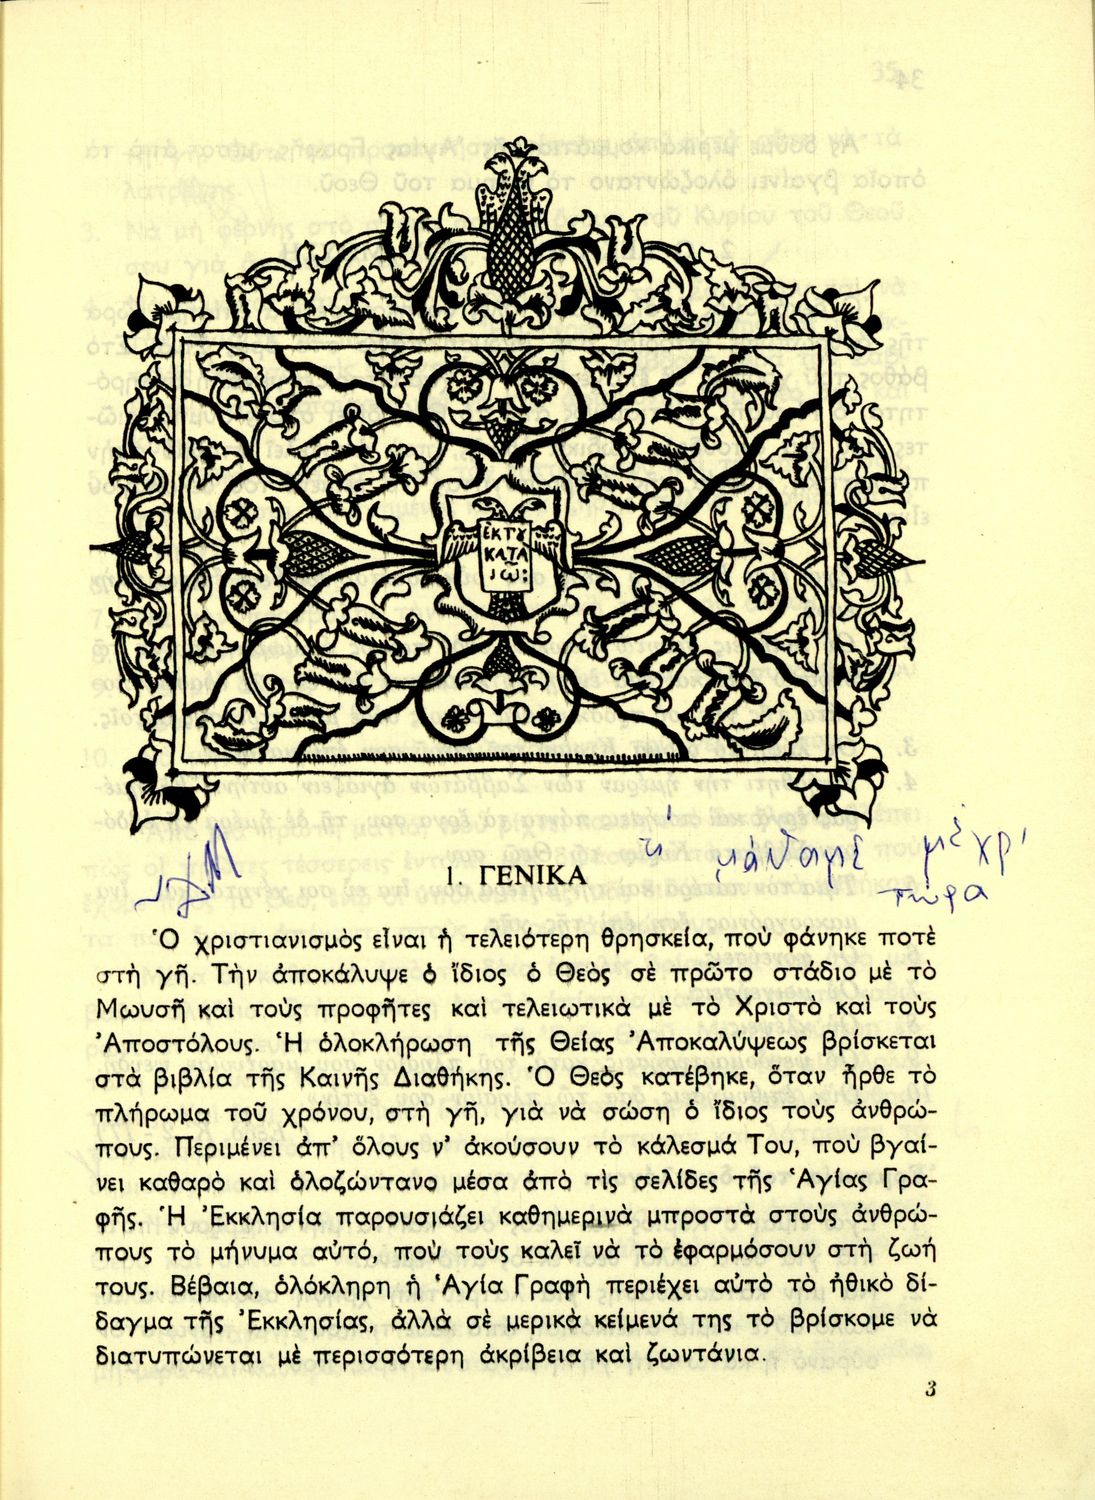 ἐκτυ
κατα
ἰω:
τί μάθαμε μέχρι
τώρα
1. ΓΕΝΙΚΑ
Ὁ χριστιανισμὸς εἶναι ἡ τελειότερη θρησκεία, ποὺ φάνηκε ποτὲ
στὴ γῆ. Τὴν ἀποκάλυψε ὁ ἴδιος ὁ Θεὸς σὲ πρῶτο στάδιο μὲ τὸ
Μωυσῆ καὶ τοὺς προφῆτες καὶ τελειωτικὰ μὲ τὸ Χριστὸ καὶ τοὺς
Ἀποστόλους. Ἡ ὁλοκλήρωση τῆς Θείας Ἀποκαλύψεως βρίσκεται
στὰ βιβλία τῆς Καινῆς Διαθήκης. Ὁ Θεὸς κατέβηκε, ὅταν ἦρθε τὸ
πλήρωμα τοῦ χρόνου, στὴ γῆ, γιὰ νὰ σώση ὁ ἴδιος τοὺς ἀνθρώ-
πους. Περιμένει ἀπ' ὅλους ν' ἀκούσουν τὸ κάλεσμά Του, ποὺ βγαί-
νει καθαρὸ καὶ ὁλοζώντανο μέσα ἀπὸ τὶς σελίδες τῆς Ἁγίας Γρα-
φῆς. Ἡ Ἐκκλησία παρουσιάζει καθημερινὰ μπροστὰ στοὺς ἀνθρώ-
πους τὸ μήνυμα αὐτό, ποὺ τοὺς καλεῖ νὰ τὸ ἐφαρμόσουν στὴ ζωή
τους. Βέβαια, ὁλόκληρη ἡ Ἁγία Γραφὴ περιέχει αὐτὸ τὸ ἠθικὸ δί-
δαγμα τῆς Ἐκκλησίας, ἀλλὰ σὲ μερικὰ κείμενά της τὸ βρίσκομε νὰ
διατυπώνεται μὲ περισσότερη ἀκρίβεια καὶ ζωντάνια.
3